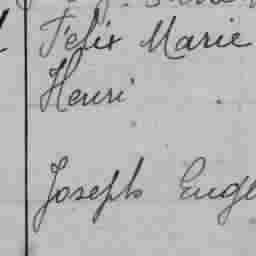 Félix Marie
Henri
Joseph Eugè